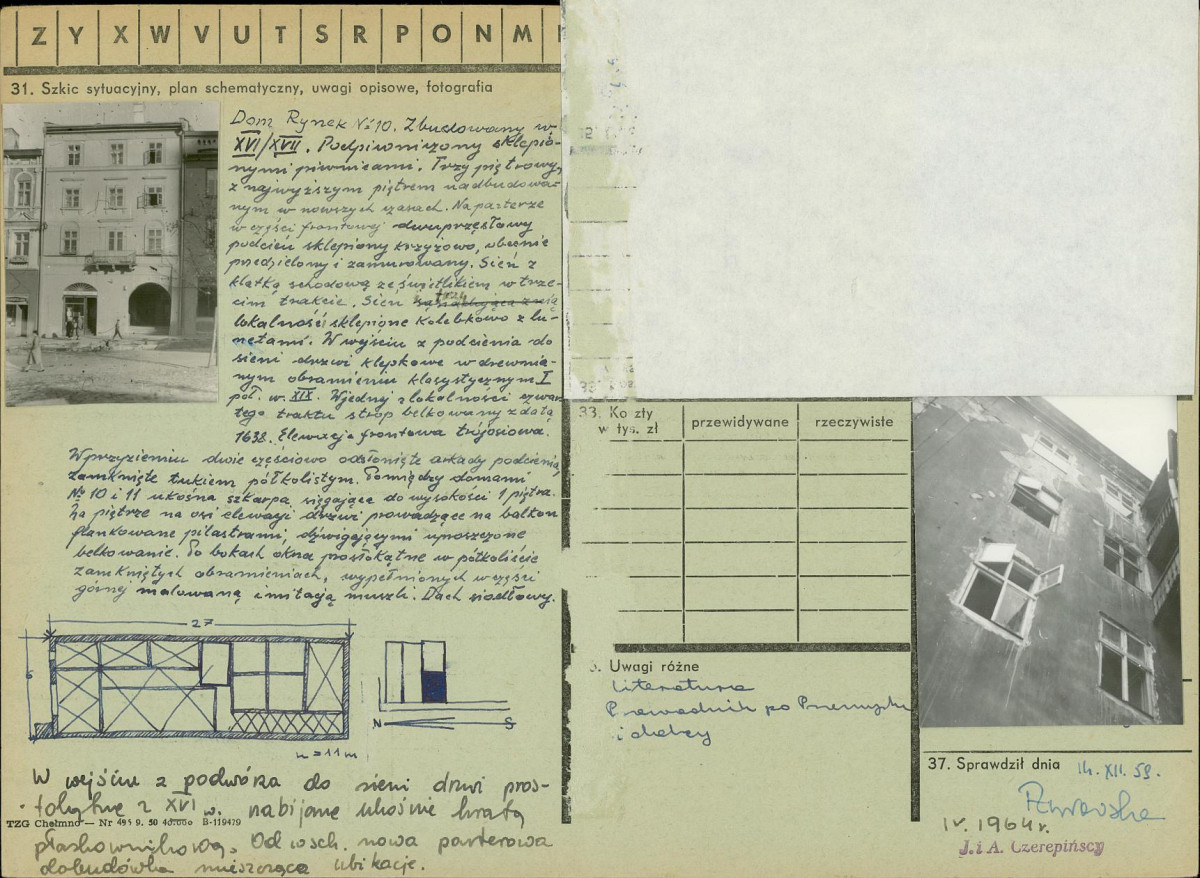 Z Y X W V U T S R P O N M
31. Szkic sytuacyjny, plan schematyczny, uwagi opisowe, fotografia
Dom Rynek № 10. Zbudowany w
XVI/XVII. Podpiwniczony sklepio-
nymi piwnicami. Trzy piętrowy,
z najwyższym piętrem nadbudowa-
nym w nowszych czasach. Na parterze
w części frontowej dwuprzęsłowy
podcień sklepiony krzyżowo, obecnie
przedzielony i zamurowany. Sień z
klatką schodową ze świetlikiem w trze-
cim trakcie. Sień
lokalności sklepione kolebkowo z lu-
netami. W wejściu z podcienia do
sieni drzwi klepkowe w drewnia-
nym obramieniu klasystycznym I
poł. w. XIX. W jednej z lokalności czwar-
tego traktu strop belkowany z datą
1638. Elewacja frontowa trójosiowa.
W przyziemiu dwie częściowo odsłonięte arkady podcienia,
zamknięte łukiem półkolistym. Pomiędzy domami
№ 10 i 11 ukośna szkarpa sięgająca do wysokości 1 piętra.
Na piętrze na osi elewacji drzwi prowadzące na balkon
flankowane pilastrami, dźwigającymi uproszczone
belkowanie. Po bokach okna prostokątne w półkoliście
zamkniętych obramieniach, wypełnionych w części
górnej malowaną imitacją muszli. Dach siodłowy.
27
N S
h = 11 m
W wejściu z podwórza do sieni drzwi pros-
tokątne z XVI w. nabijane ukośnie kratą
TZG Chełmno — Nr 495 9. 50 40.000 B-119479
płaskownikową. Od wsch. nowa parterowa
dobudówka mieszcząca ubikacje.
33. Koszty
w tys. zł
przewidywane
rzeczywiste
Uwagi różne
Literatura
Przewodnik po Przemyślu
i okolicy
37. Sprawdził dnia
14. XII. 59.
IV. 1964 r.
J. i A. Czerepińscy